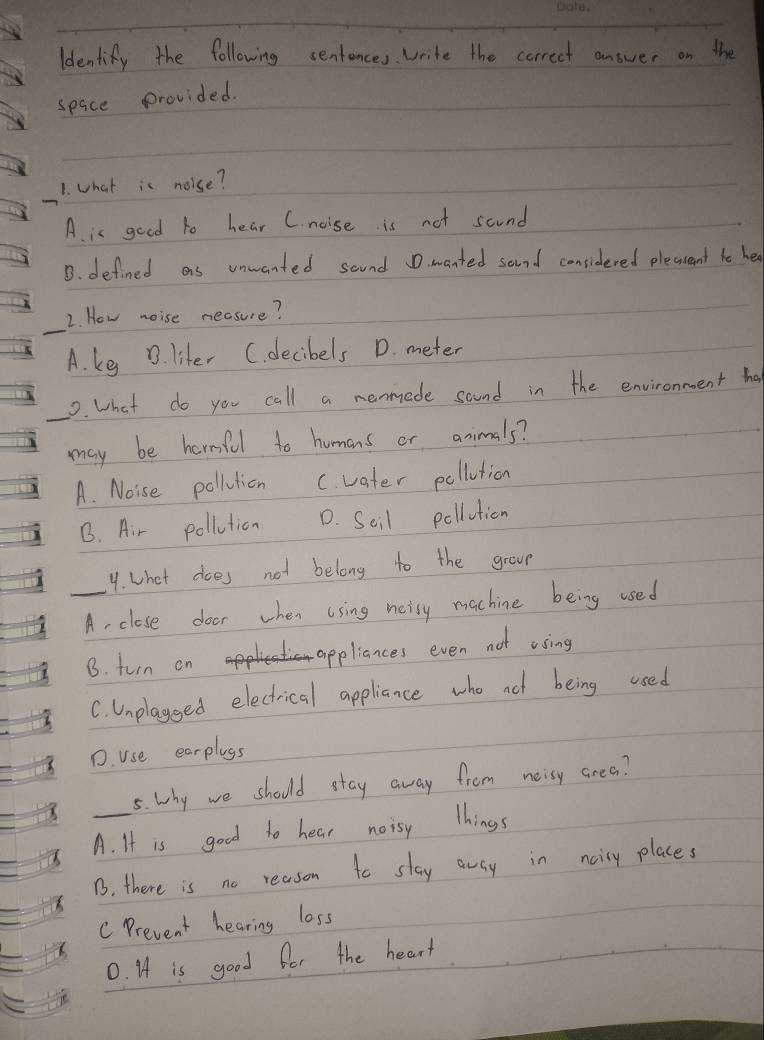 Date.
Identify the following sentences. Write the correct answer on the
space provided.
_1. what is noise?
A. is good to hear C. noise is not sound
B. defined as unwanted sound D. wanted sound considered pleasant to hea
_2. How noise measure?
A. kg B. liter C. decibels D. meter
_3. What do you call a manmade sound in the environment tha
may be harmful to humans or animals?
A. Noise pollution C. water pollution
B. Air pollution D. Soil pollution
_4. What does not belong to the group
A. close door when using noisy machine being used
B. turn on application appliances even not using
C. Unplagged electrical appliance who not being used
D. use earplugs
_5. Why we should stay away from noisy area?
A. It is good to hear noisy things
B. there is no reason to stay away in noisy places
C Prevent hearing loss
D. It is good for the heart